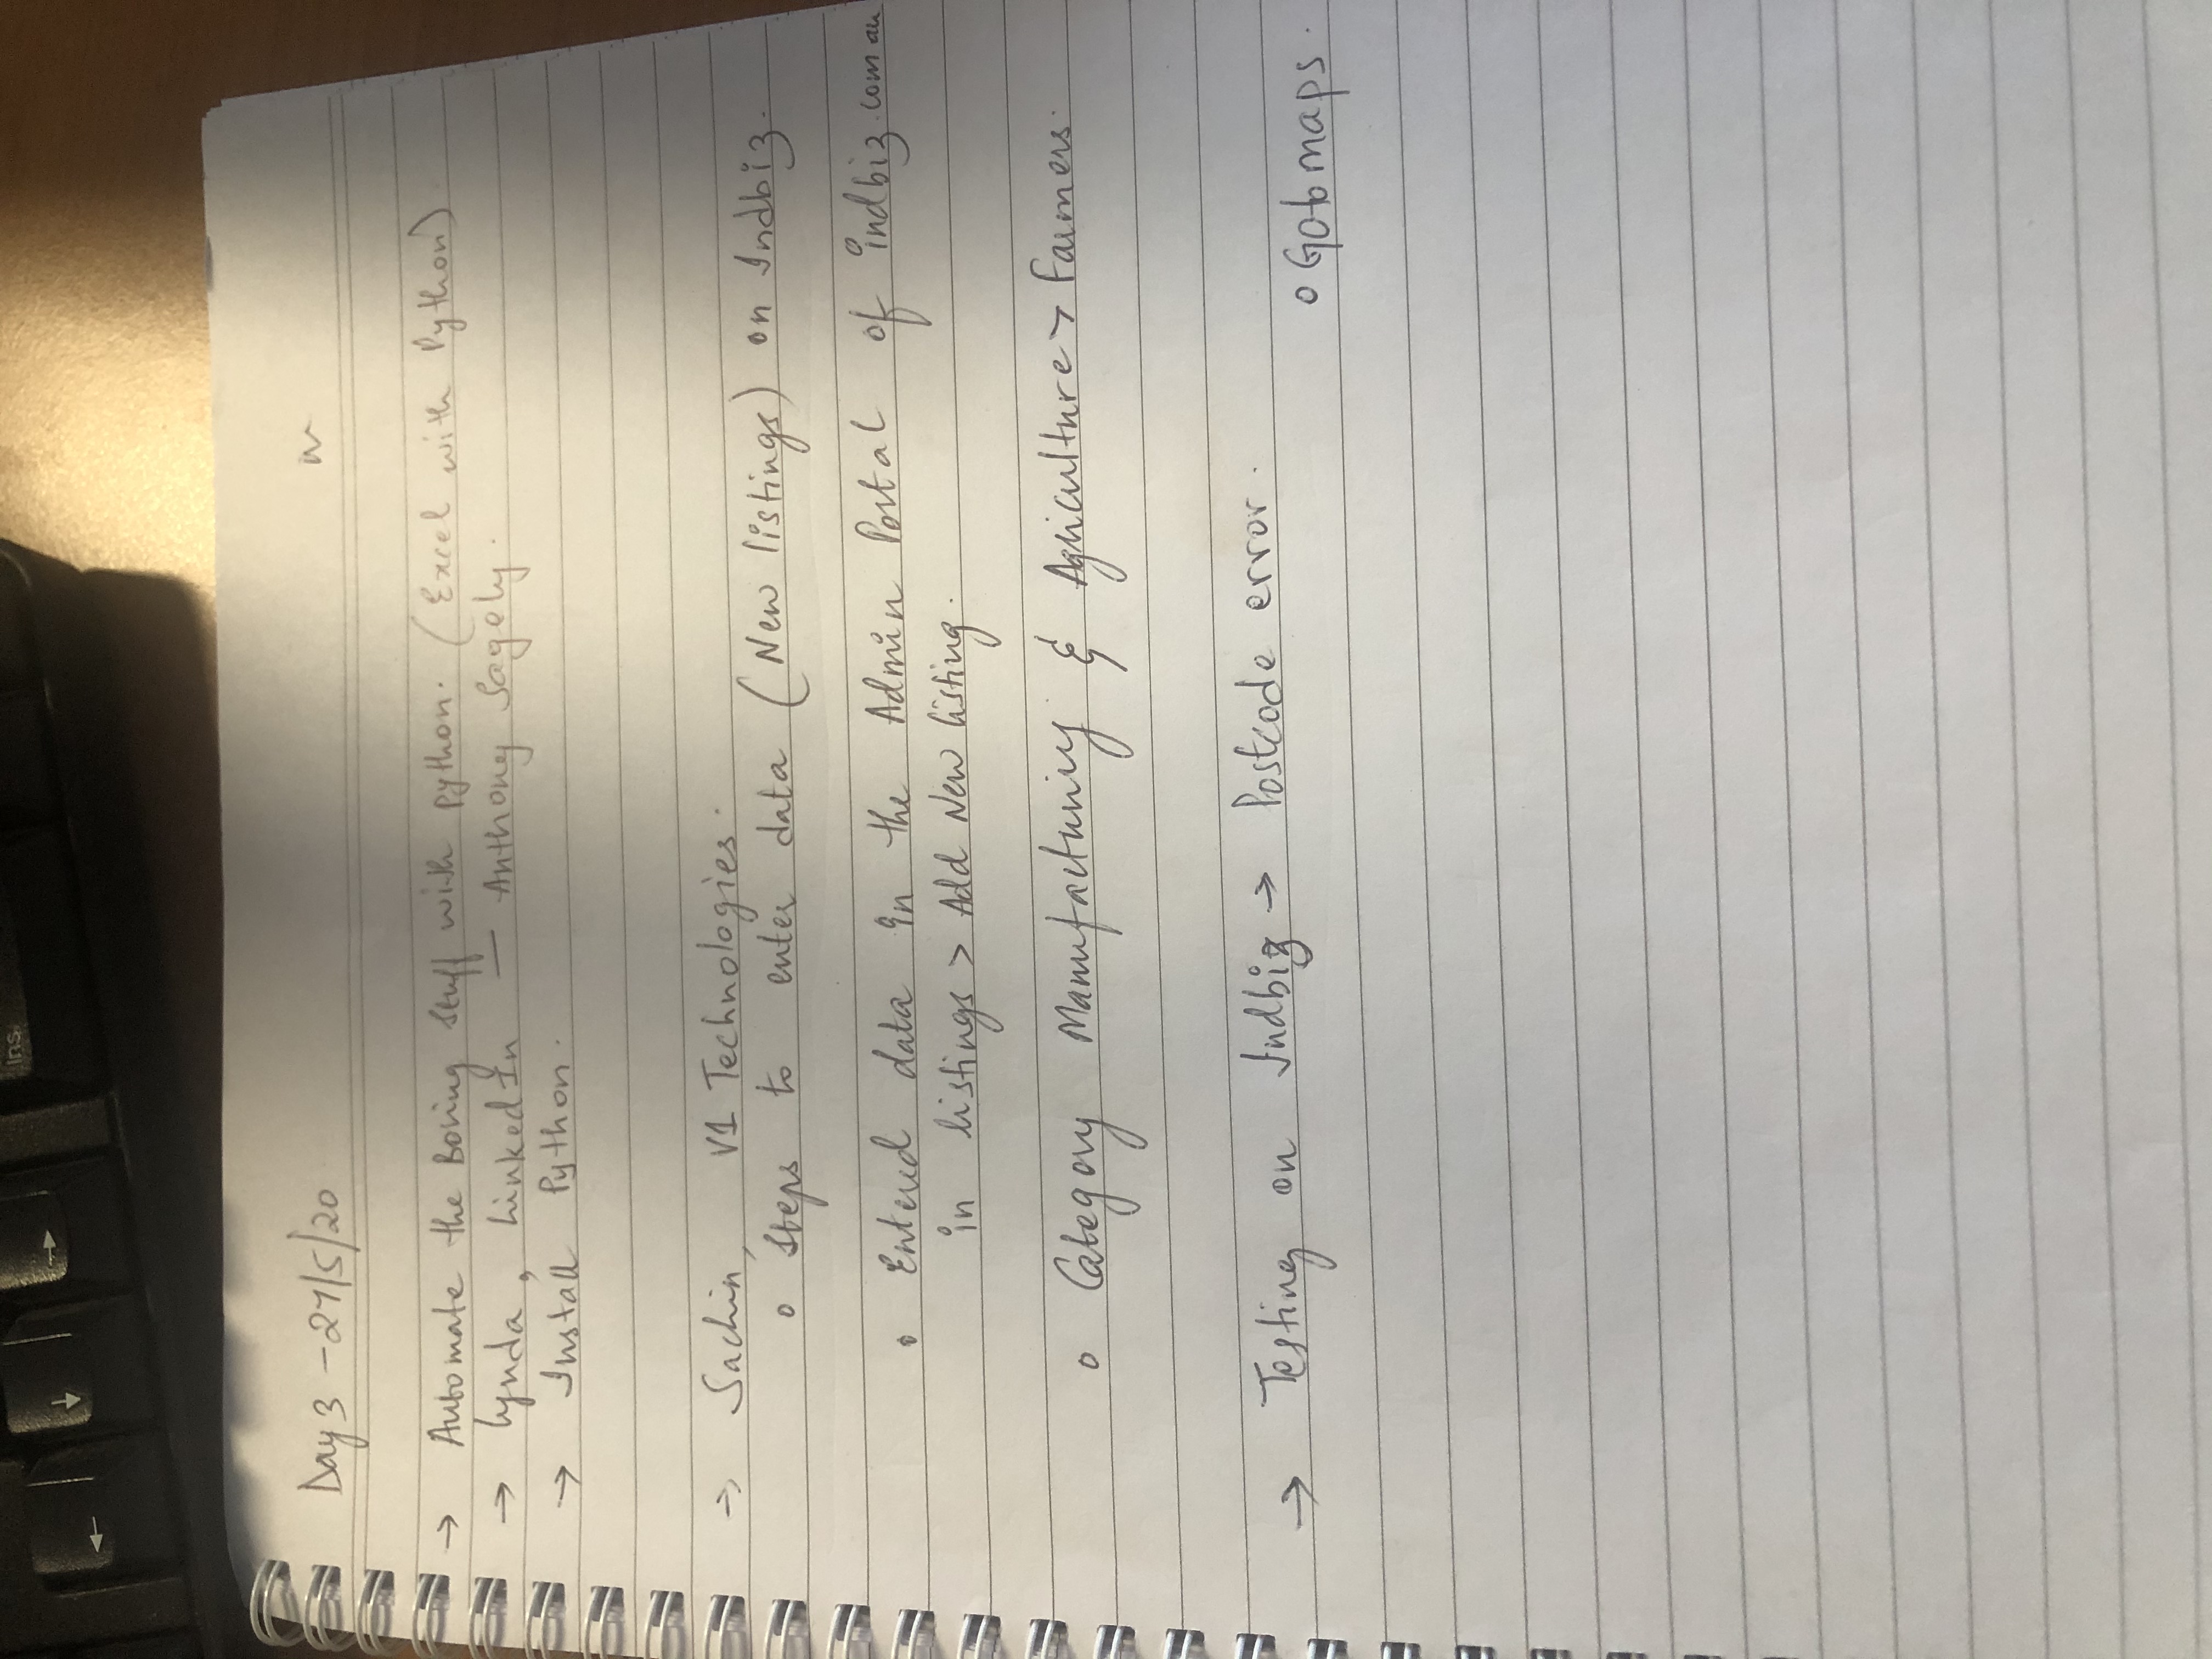 Ins
←
↓
→
Day 3 - 27/5/20
→ Automate the Boring Stuff with python. (Excel with Python)
→ Lynda, LinkedIn — Anthony Sagely.
→ Install Python.
→ Sachin, V1 Technologies.
o Steps to enter data (New listings) on Indbiz.
o Entered data in the Admin Portal of indbiz.com.au
in listings > Add New listing.
o Category Manufacturing & Agriculture > Farmers.
→ Testing on Indbiz → Postcode error.
o Goto maps.